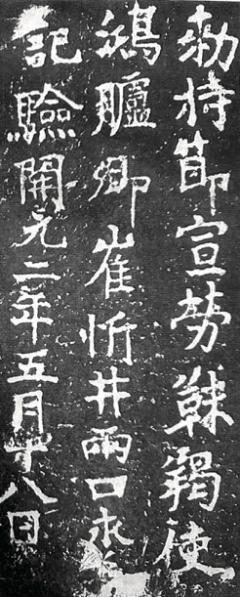 勅持節宣勞靺鞨使
鴻臚卿崔忻井兩口永為
記驗開元二年五月十八日